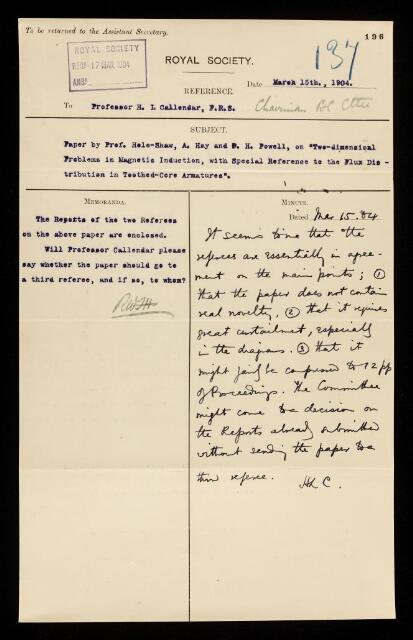 To be returned to the Assistant Secretary.
196
ROYAL SOCIETY
RECD 17 MAR. 1904
ANSD
137
ROYAL SOCIETY.
REFERENCE.
Date March 15th., 1904.
To Professor H. L Callendar, F.R.S.
Chairman
SUBJECT.
Paper by Prof. Hele-Shaw, A. Hay and P. H. Powell, on "Two-dimensional
Problems in Magnetic Induction, with Special Reference to the Flux Dis -
tribution in Toothed-Core Armatures".
MEMORANDA.
The Reports of the two Referees
on the above paper are enclosed.
Will Professor Callendar please
say whether the paper should go to
a third referee, and if so, to whom?
MINUTE.
Dated Mar 15. 04
It seems to me that the
referees are essentially in agree-
ment on the main points; (1)
that the paper does not contain
real novelty, (2) that it requires
great curtailment, especially
in the diagrams. (3) that it
might be compressed to 12 pp
of Proceedings. The Committee
might come to a decision on
the Reports already submitted
without sending the paper to a
third referee.
HLC.